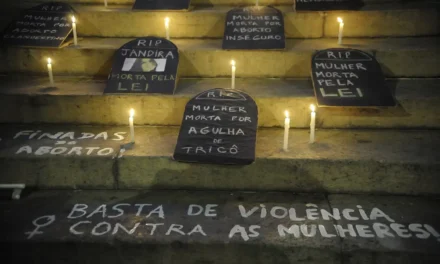 MULHER
MORTA POR
MULHER
MORTA POR ABORTO
INSEGURO
MORTA POR
RIP
JANDIRA
MORTA PELA
LEI
RIP
MULHER
MORTA PELA
LEI
RIP
MULHER
MORTA POR
AGULHA
DE
TRICÔ
FINADAS
DO
ABORTO!
BASTA DE VIOLÊNCIA
CONTRA AS MULHERES!